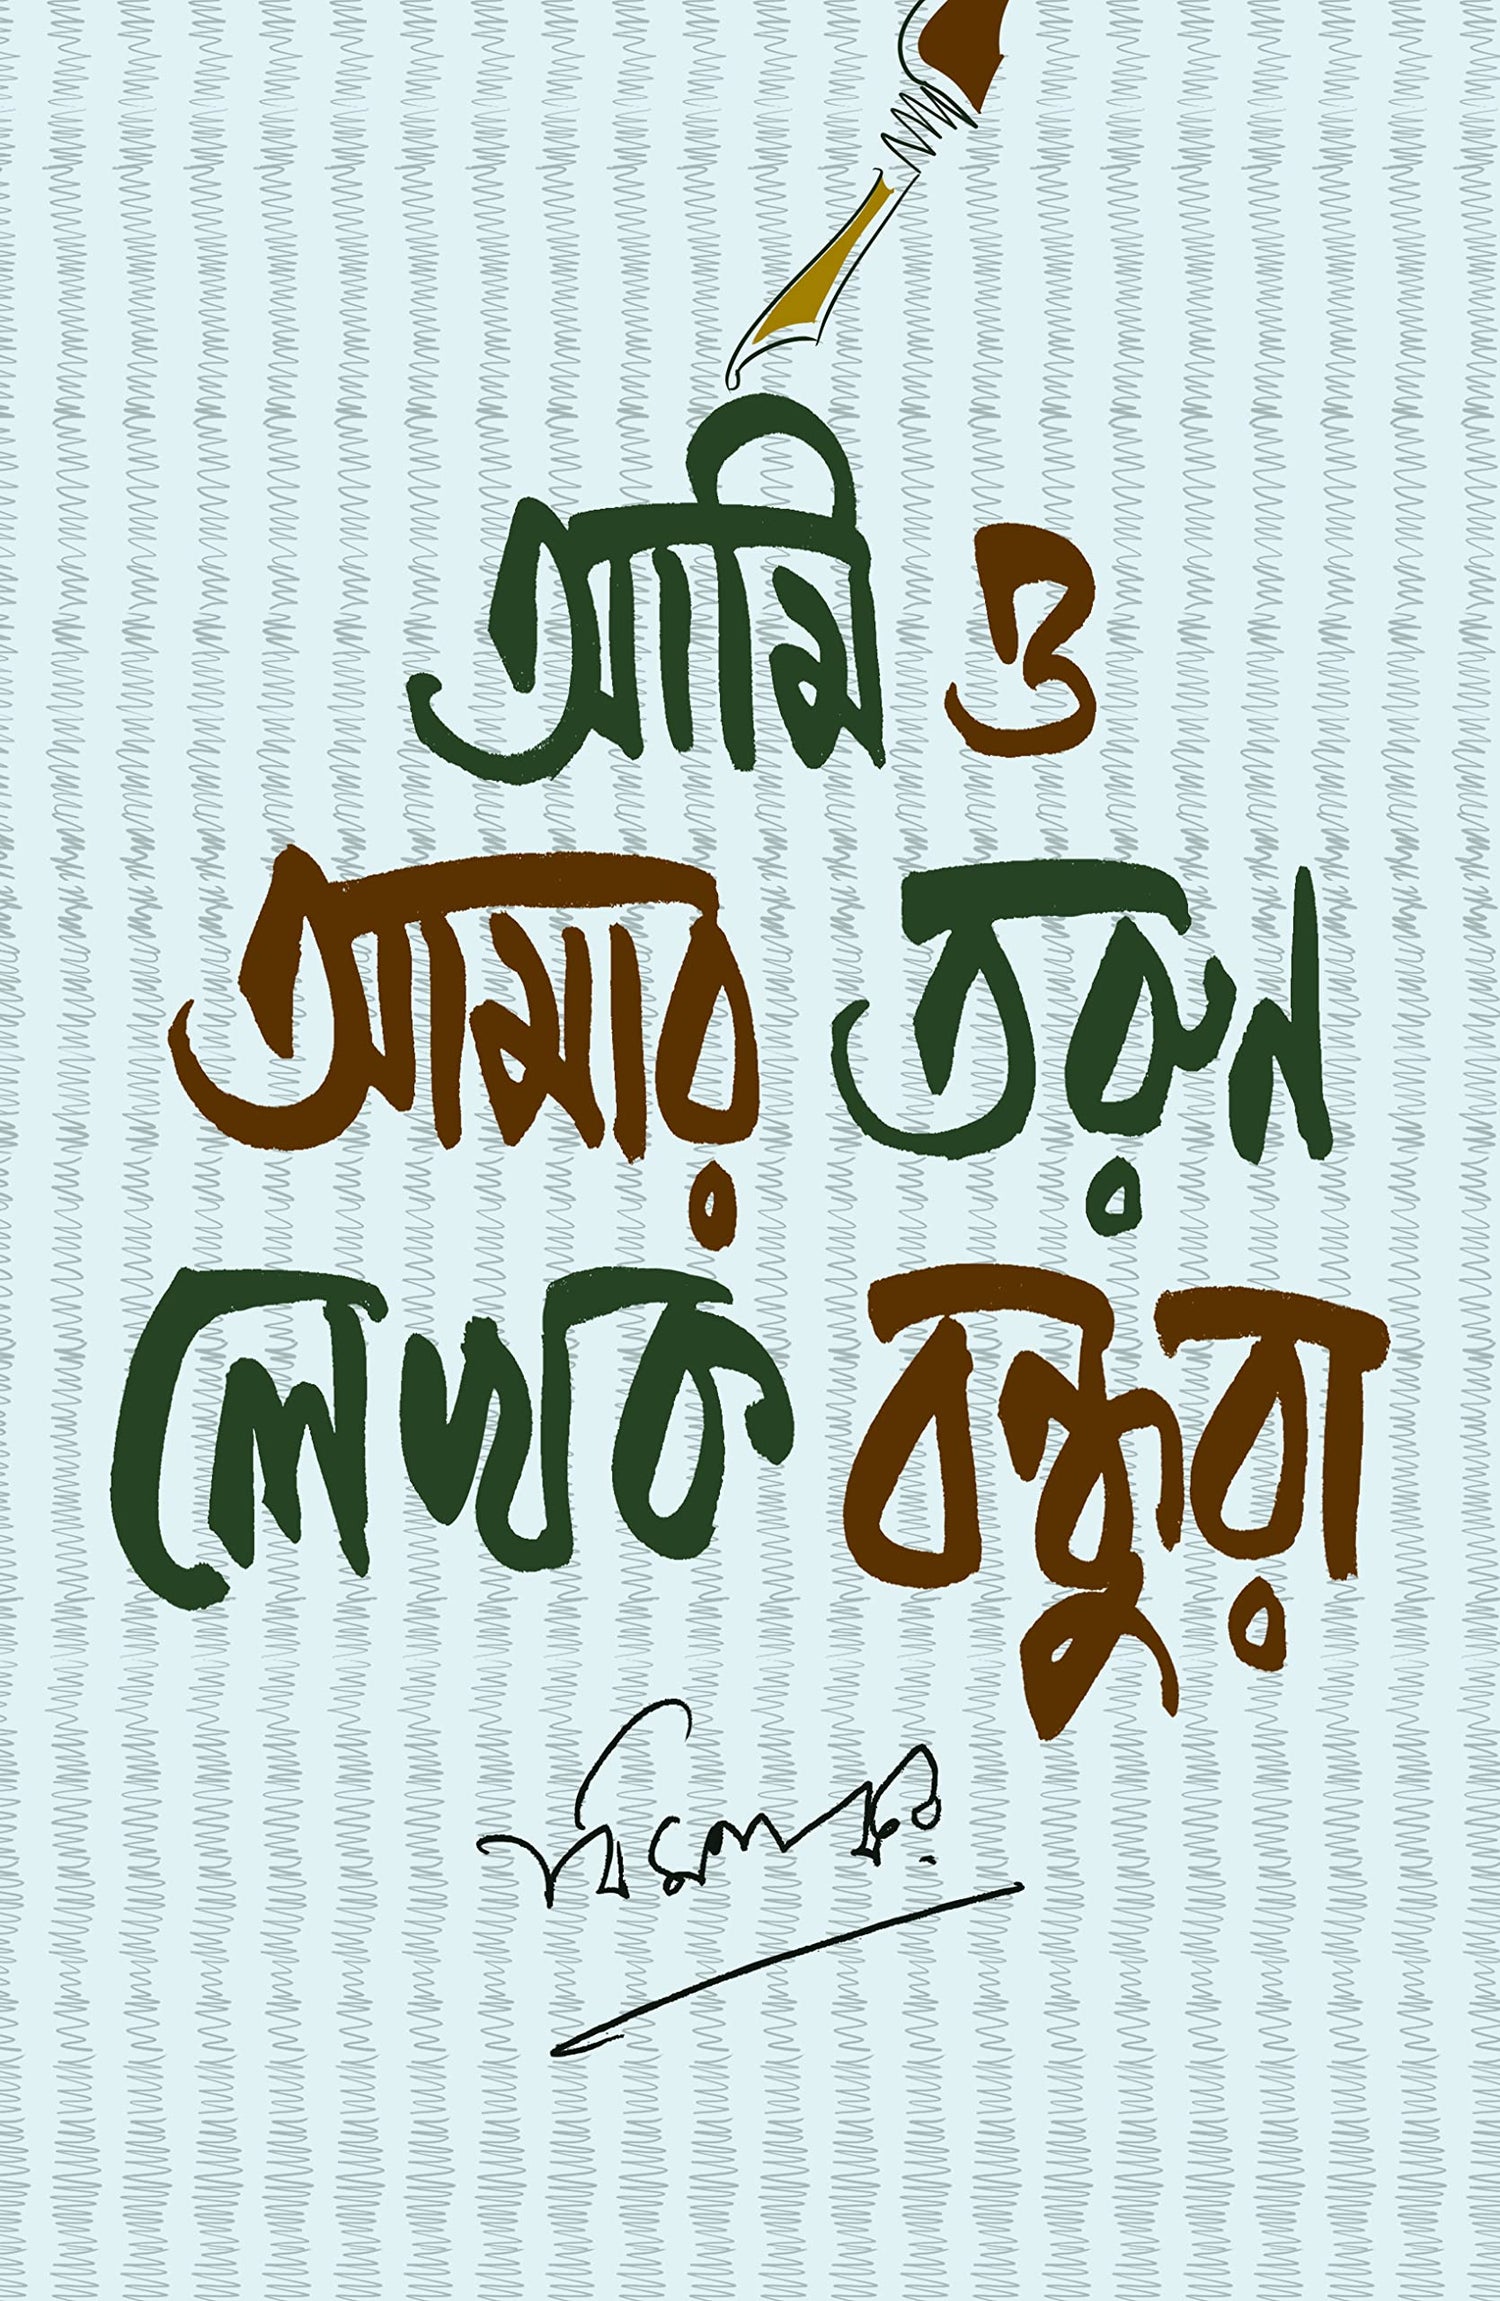 আমি ও
আমার তরুণ
লেখক বন্ধুরা
মণিশংকর